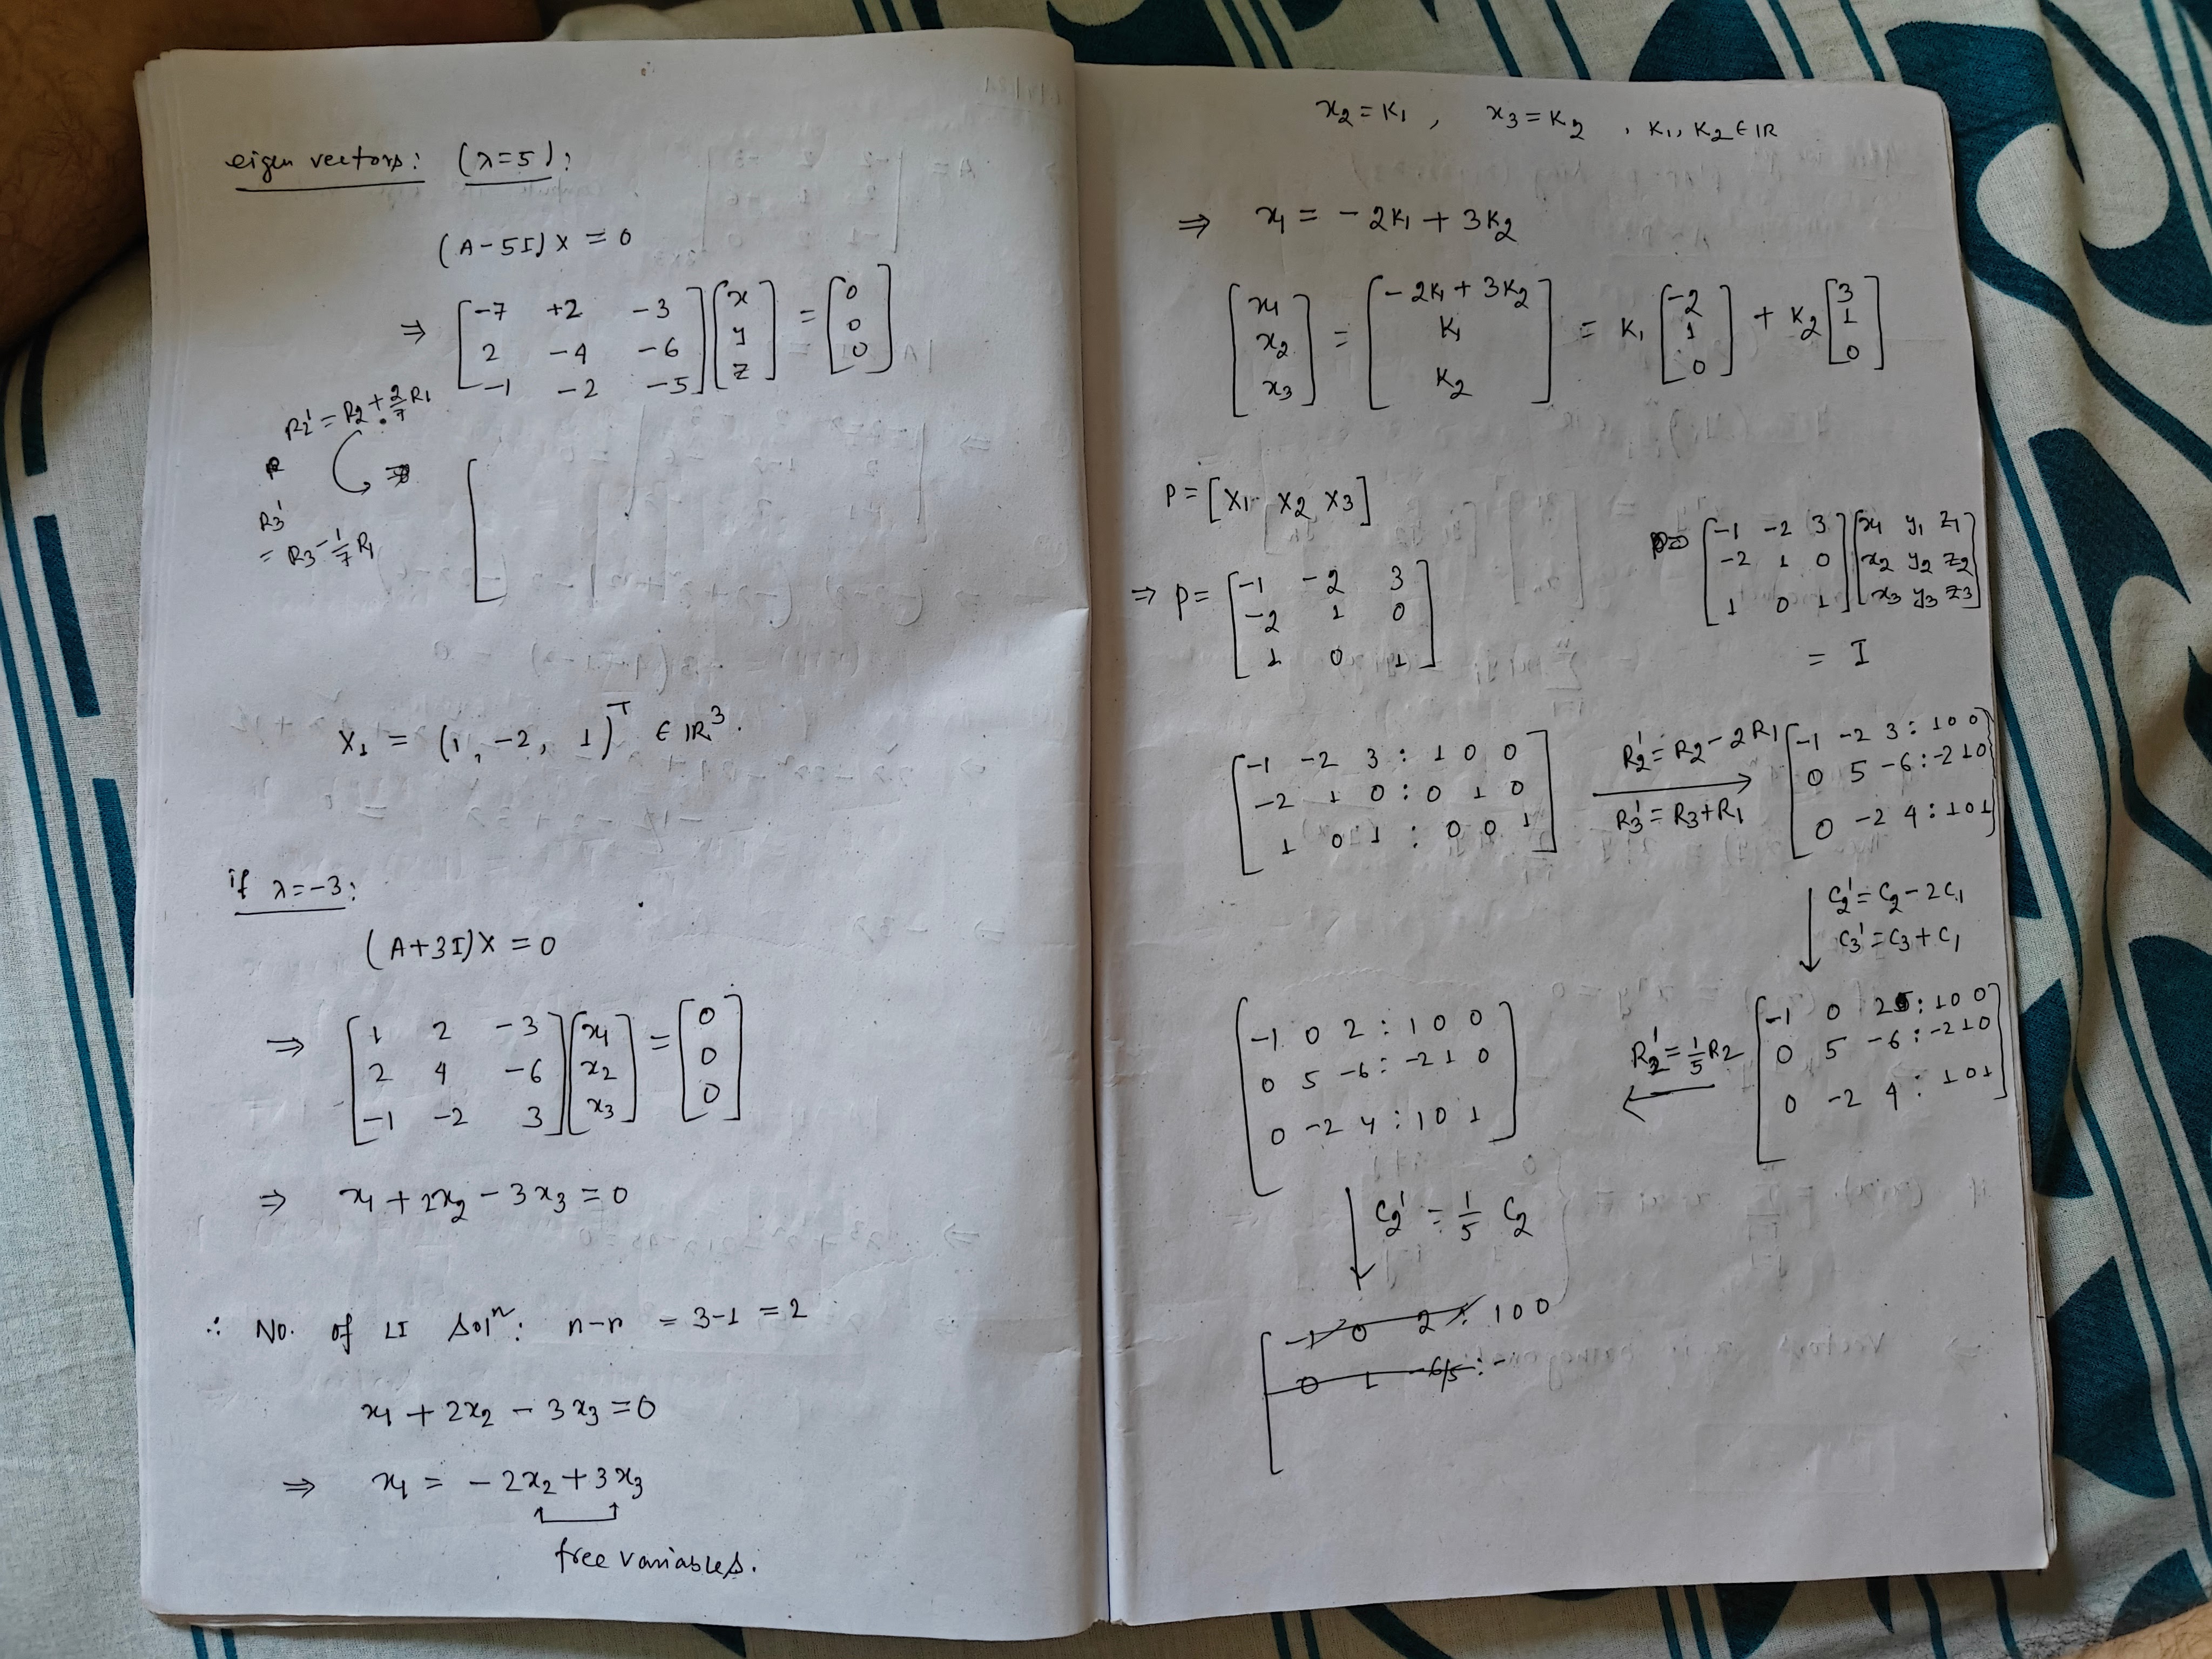 eigen vectors: (λ=5):
(A-5I)X = 0
⇒ [-7 +2 -3] [x] = [0]
[2 -4 -6] [y] [0]
[-1 -2 -5] [z] [0]
R2' = R2 + 2/7 R1
R3'
= R3 - 1/7 R1
X1 = (1, -2, 1)^T ∈ IR^3.
if λ=-3:
(A+3I)X = 0
⇒ [1 2 -3] [x1] = [0]
[2 4 -6] [x2] [0]
[-1 -2 3] [x3] [0]
⇒ x1 + 2x2 - 3x3 = 0
∴ No. of LI sol^n: n-r = 3-1 = 2
x1 + 2x2 - 3x3 = 0
⇒ x1 = -2x2 + 3x3
free variables.
x2 = K1, x3 = K2, K1, K2 ∈ IR
⇒ x1 = -2K1 + 3K2
[x1] = [-2K1 + 3K2] = K1 [-2] + K2 [3]
[x2] [K1] [1] [1]
[x3] [K2] [0] [0]
P = [X1 X2 X3]
⇒ P = [-1 -2 3]
[-2 1 0]
[1 0 1]
[-1 -2 3] [x1 y1 z1]
[-2 1 0] [x2 y2 z2]
[1 0 1] [x3 y3 z3]
= I
[-1 -2 3 : 1 0 0]
[-2 1 0 : 0 1 0]
[1 0 1 : 0 0 1]
R2' = R2 - 2R1
R3' = R3 + R1
[-1 -2 3 : 1 0 0]
[0 5 -6 : -2 1 0]
[0 -2 4 : 1 0 1]
C2' = C2 - 2C1
C3' = C3 + C1
[-1 0 2 : 1 0 0]
[0 5 -6 : -2 1 0]
[0 -2 4 : 1 0 1]
R2' = 1/5 R2
[-1 0 2 : 1 0 0]
[0 5 -6 : -2 1 0]
[0 -2 4 : 1 0 1]
C2' = 1/5 C2
[-1 0 2 : 1 0 0
0 1 -6/5 : -